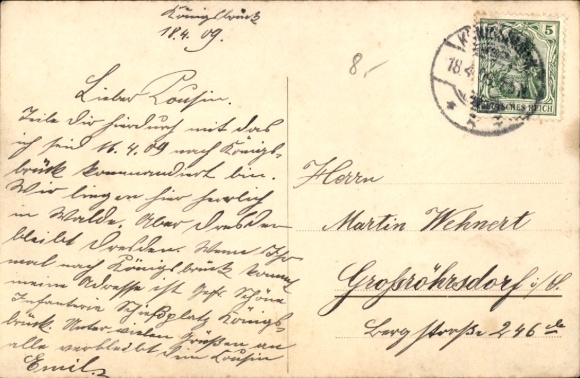 Königsbrück
18.4.09.
8.-
Lieber Cousin.
Teile Dir hierdurch mit das
ich seid 16.4.09 nach Königs-
brück kommandiert bin.
Wir liegen hier herrlich
in Walde, Aber Dresden
bleibt Dresden. Wenn Ihr
mal nach Königsbrück kommt
meine Adresse ist Schöne
Infanterie Schießplatz Königs-
brück. Unter vielen Grüßen an
alle verbleibt dein Cousin
Emil.
5
18.4.
DEUTSCHES REICH
Herrn
Martin Wehnert
Großröhrsdorf i/S.
Bergstraße 246